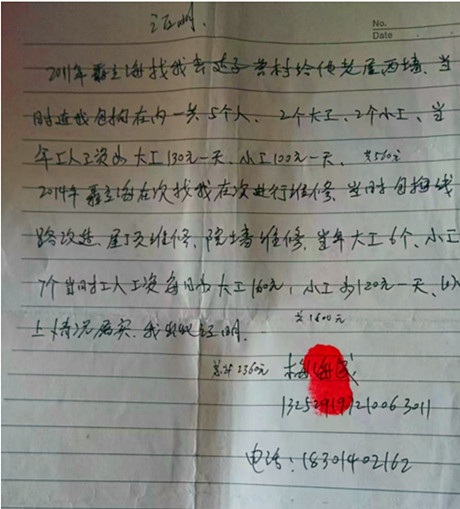 证明.
No.
Date
2011年聂立海找我去达子营村给他老屋西墙、当
时连我包括在内一共5个人、2个大工、2个小工、当
年工人工资为大工130元一天、小工100元一天、共560元
2014年聂立海在次找我在次进行维修、当时包括线
路改造、屋顶维修、院墙维修、当年大工6个、小工
7个当时工人工资每日为大工160元,小工为120元一天、以
上情况属实、我 证明.
共1800元
总计2360元
海
电话:18301402162